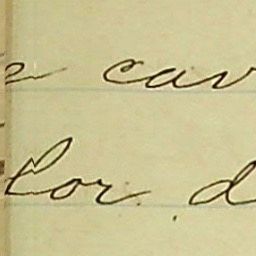 cav
lor. d